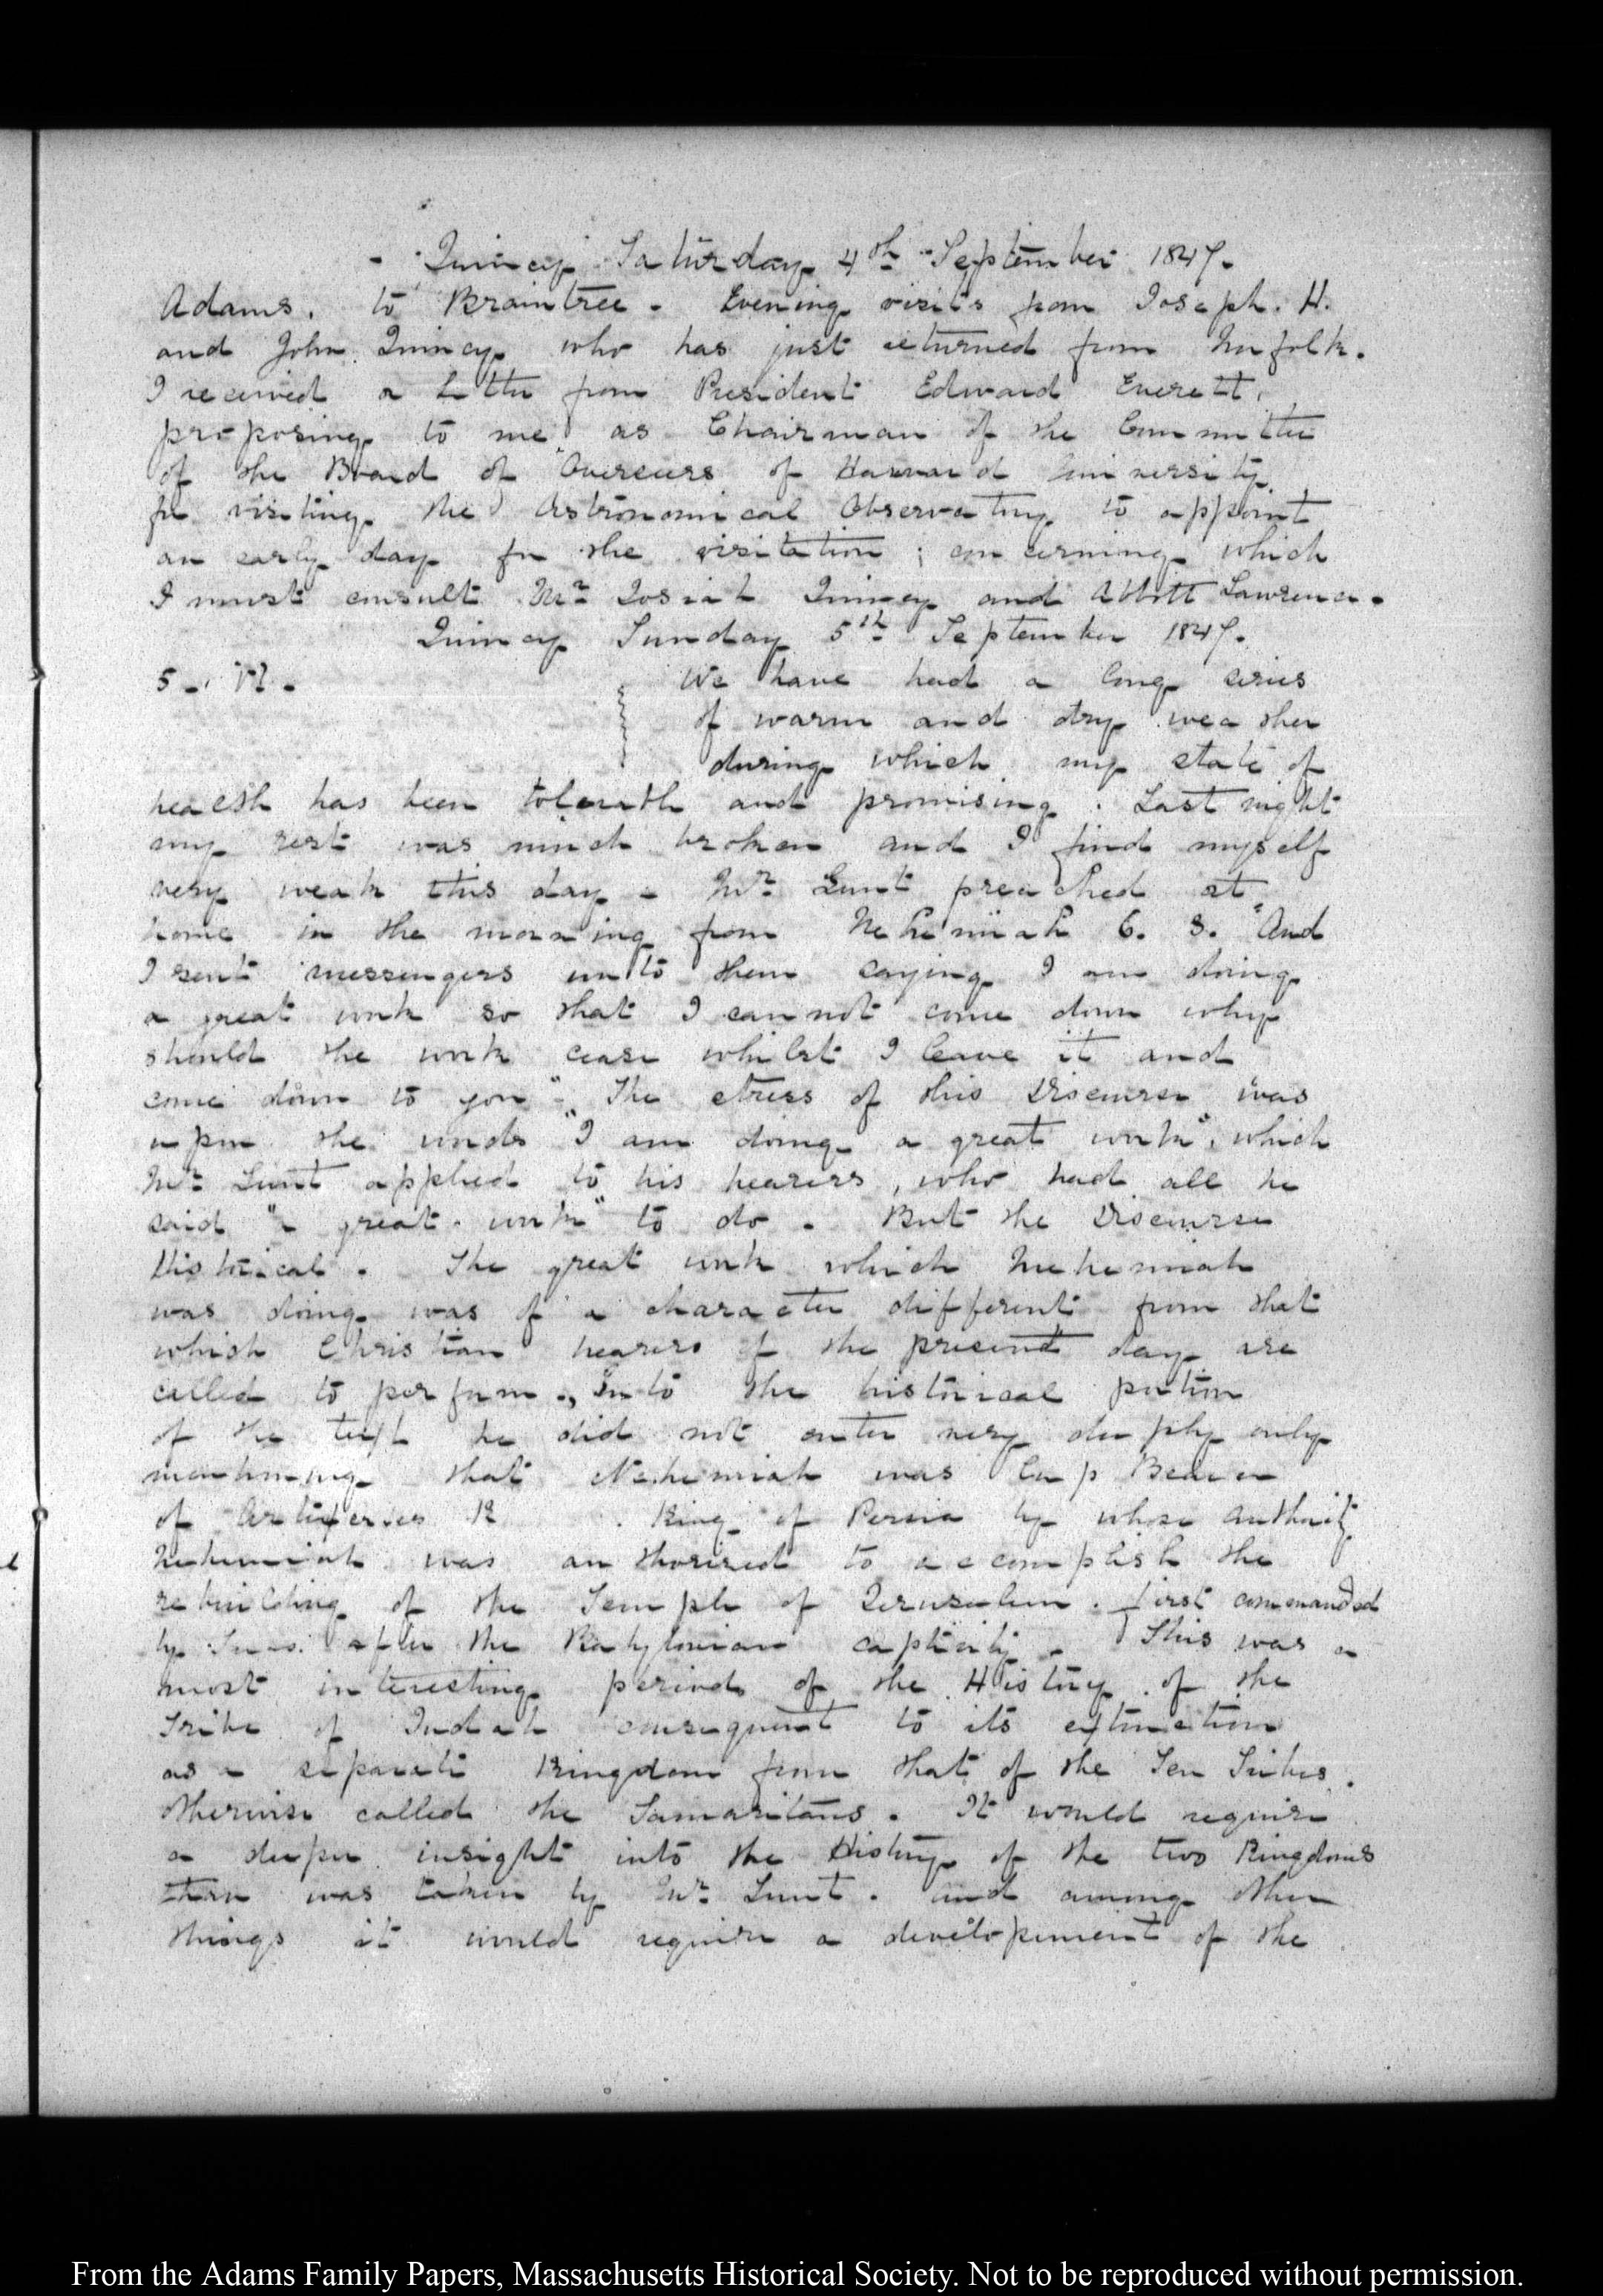 Quincy Saturday 4th September 1847.
Adams. to Braintree. Evening visits from Joseph. H.
and John Quincy who has just returned from Norfolk.
I received a Letter from President Edward Everett,
proposing to me as Chairman of the Committee
of the Board of Overseers of Harvard University
for visiting the Astronomical Observatory to appoint
an early day for the visitation; concerning which
I must consult Mr Josiah Quincy and Abbott Lawrence.
Quincy Sunday 5th September 1847.
5. VI.
We have had a long series
of warm and dry weather
during which my state of
health has been tolerable and promising. Last night
my rest was much broken and I find myself
very weak this day. Mr Lunt preached at
home in the morning from Nehemiah 6. 3. "And
I sent messengers unto them saying I am doing
a great work so that I cannot come down why
should the work cease whilst I leave it and
come down to you". The stress of this Discourse was
upon the words "I am doing a great work", which
Mr Lunt applied to his hearers, who had all he
said "a great work" to do. But the Discourse
Historical. The great work which Nehemiah
was doing was of a character different from that
which Christian hearers of the present day are
called to perform., Into the historical portion
of the text he did not enter very deeply only
mentioning that Nehemiah was Cup Bearer
of Artaxerxes King of Persia by whose authority
Nehemiah was authorised to accomplish the
rebuilding of the Temple of Jerusalem. first commanded
by after the Babylonian captivity. This was a
most interesting period of the History of the
Tribe of Judah consequent to its extinction
as a separate Kingdom from that of the Ten Tribes.
otherwise called the Samaritans. It would require
a deeper insight into the History of the two Kingdoms
than was taken by Mr Lunt. and among other
things it would require a developement of the
From the Adams Family Papers, Massachusetts Historical Society. Not to be reproduced without permission.